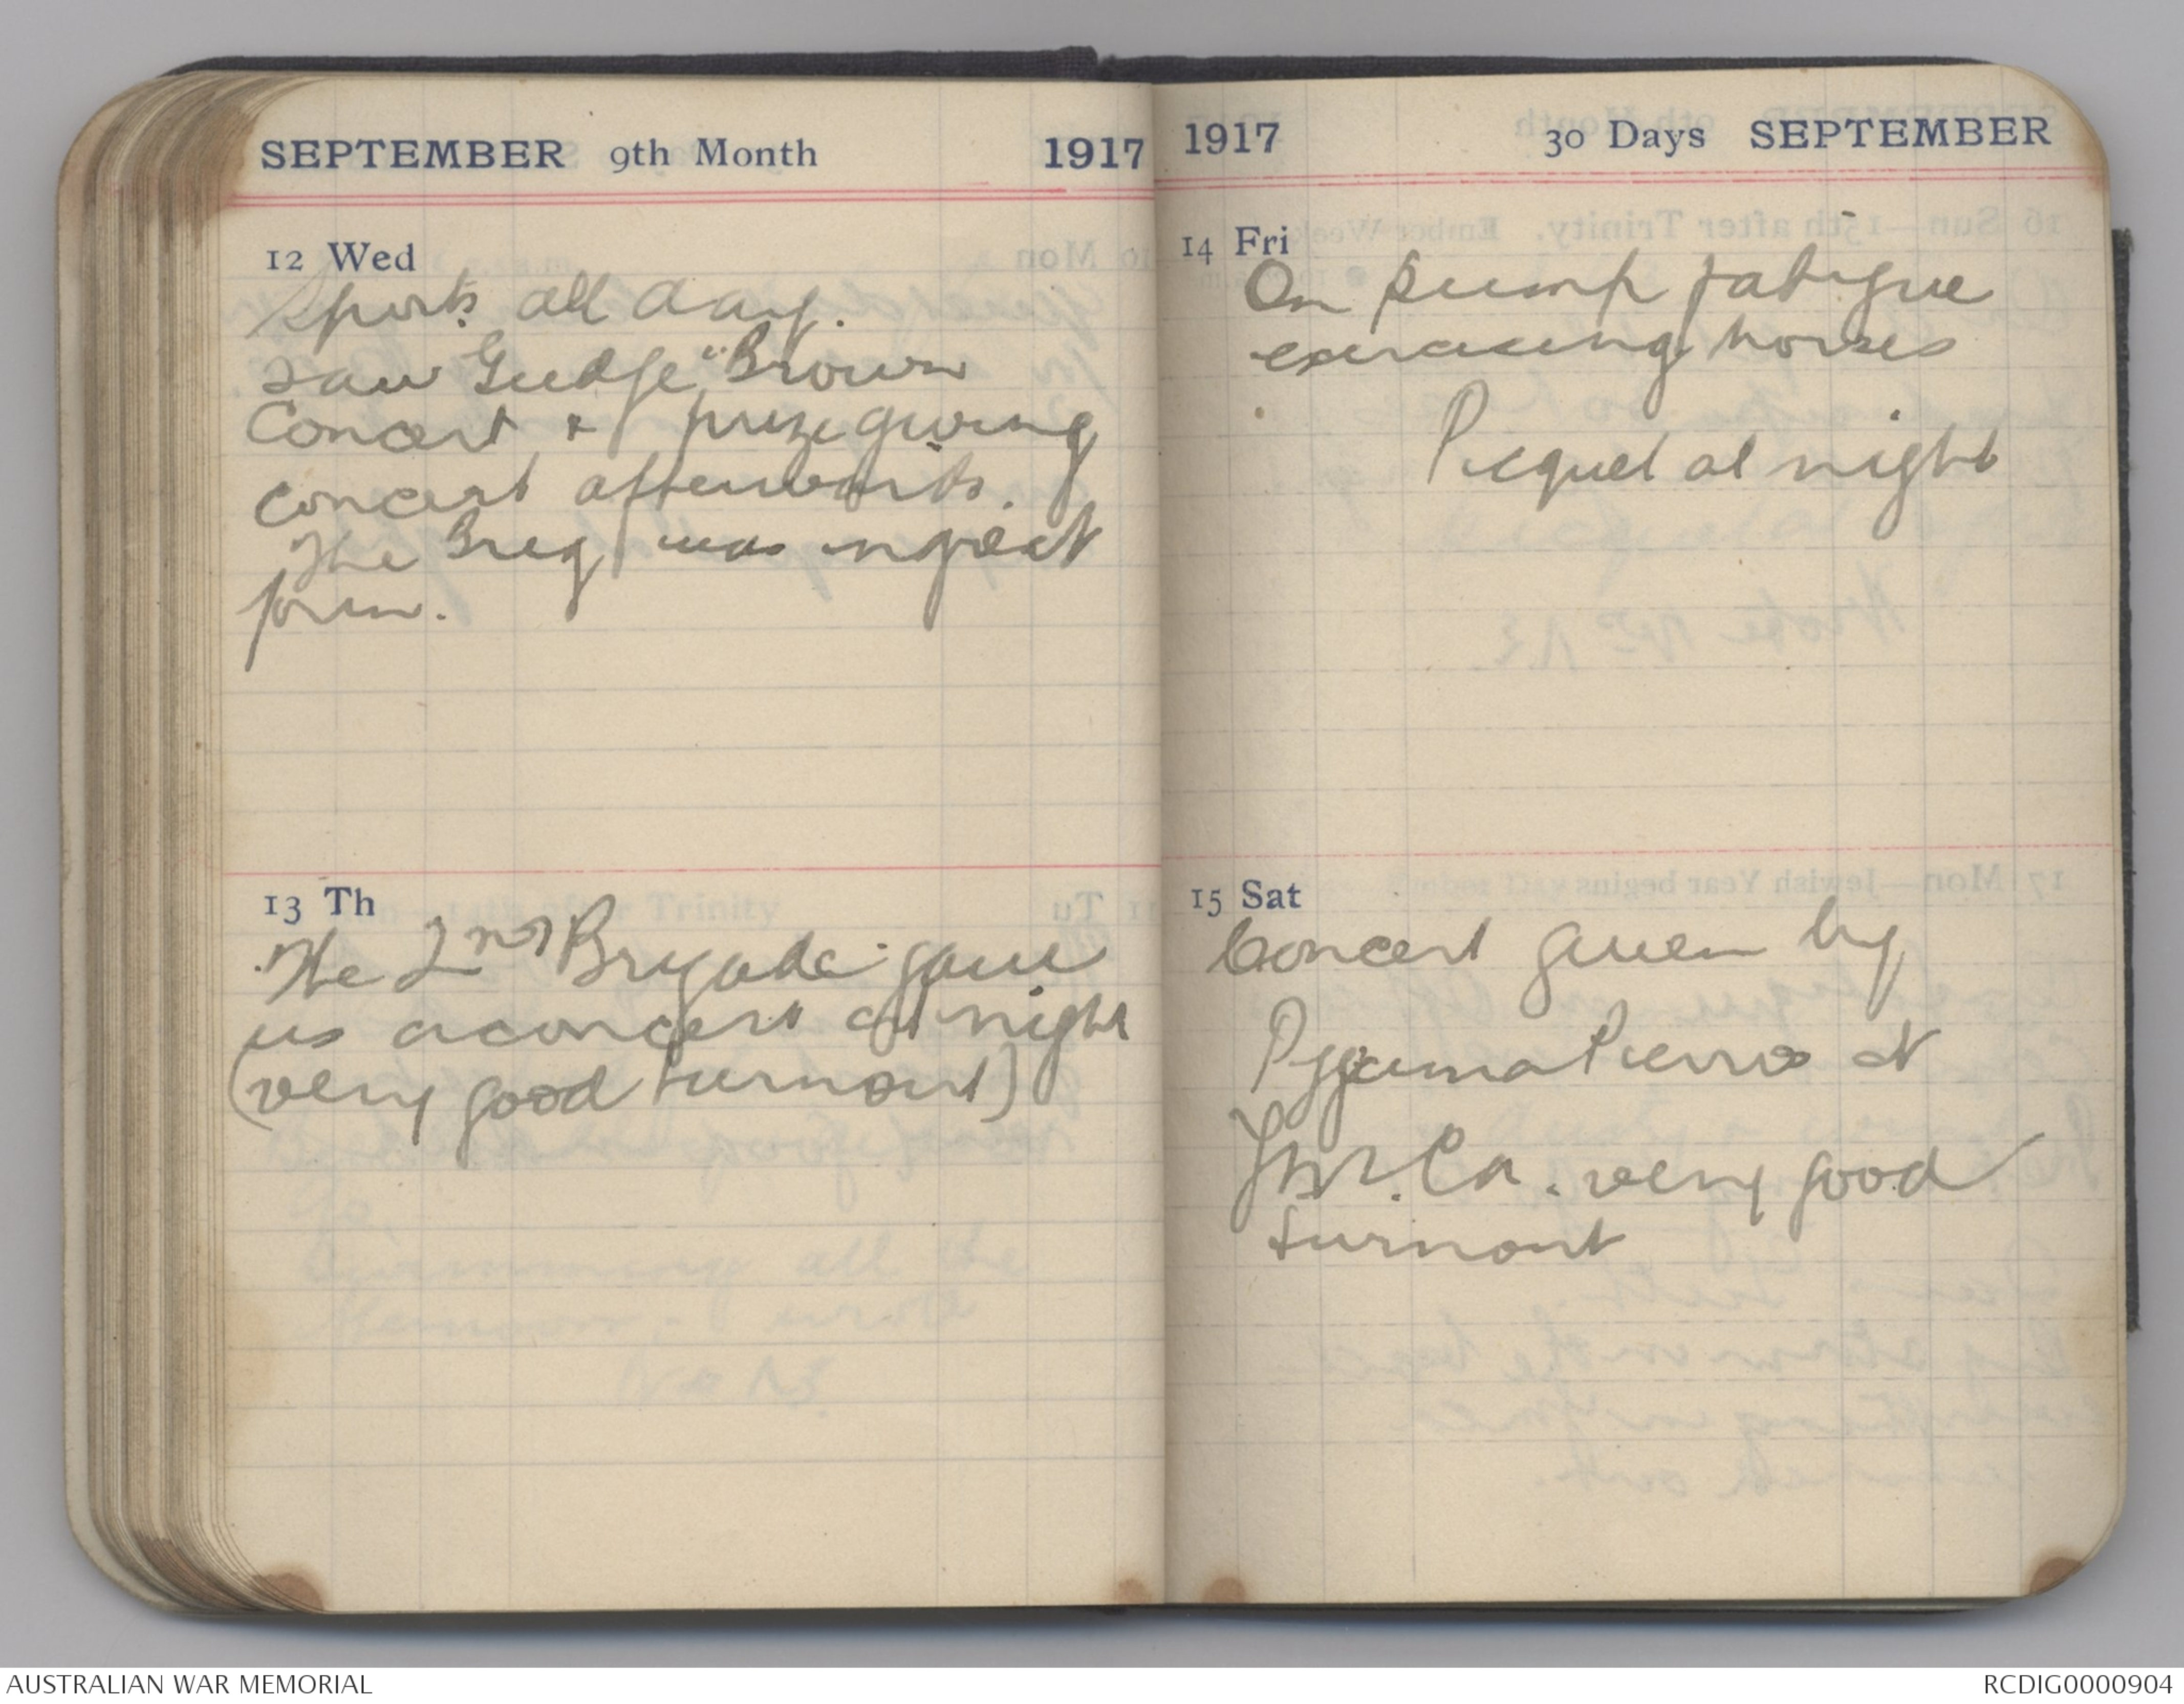 SEPTEMBER 9th Month 1917
12 Wed
Sports all day.
Saw "Gudge" Brown
Concert & prize giving
concert afterwards.
The Brig was in great
form.
13 Th
The 2nd Brigade gave
us a concert at night
(very good turnout)
1917 30 Days SEPTEMBER
14 Fri
On pump fatigue
exercising horses
Picquet at night
15 Sat
Concert given by
Pyjama Pierros at
Y.M.C.A. very good
turnout
AUSTRALIAN WAR MEMORIAL
RCDIG0000904